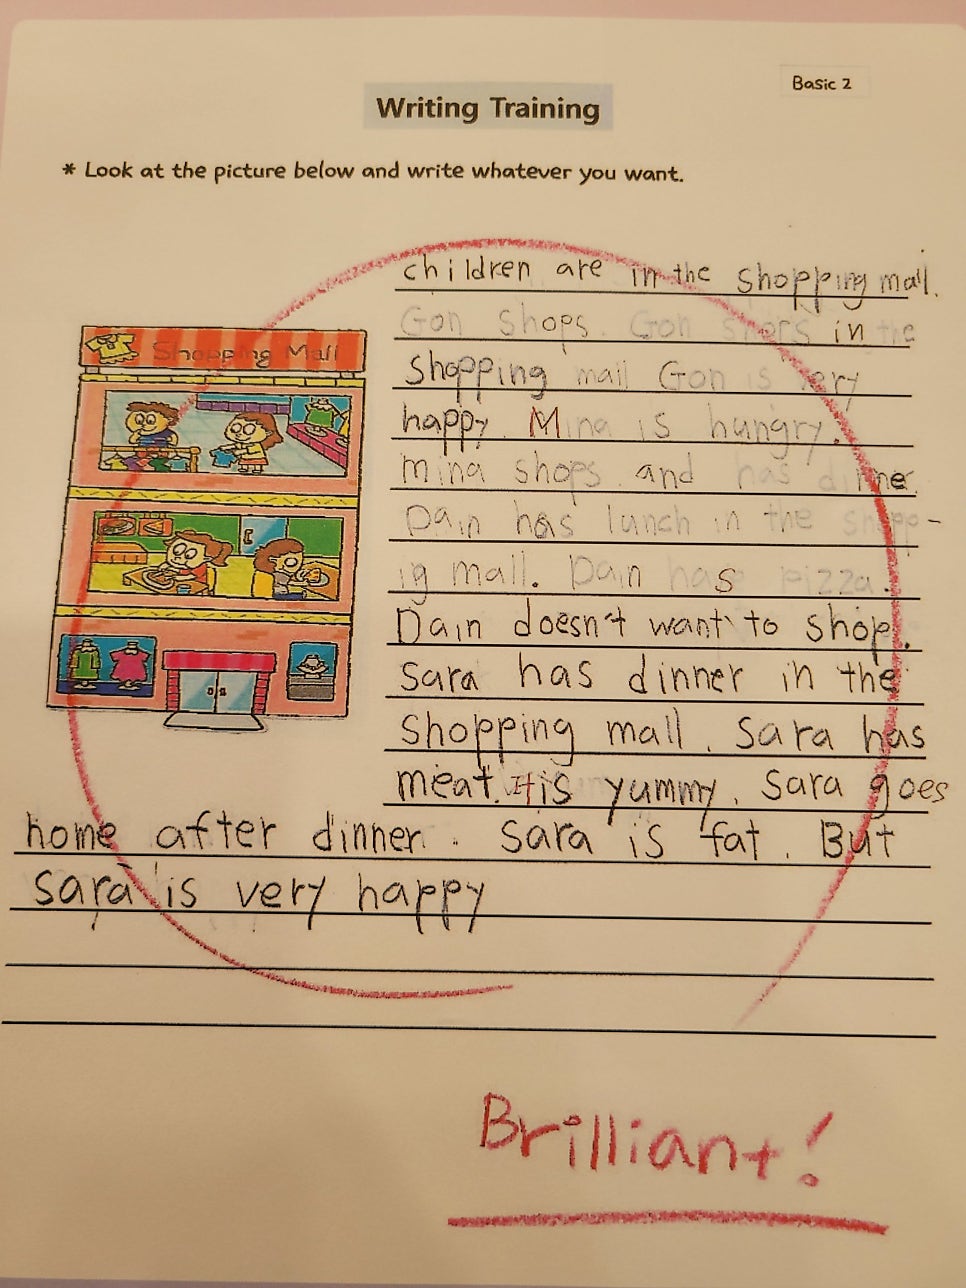 Basic 2
Writing Training
* Look at the picture below and write whatever you want.
children are in the shopping mall.
Gon shops. Gon shops in the
Shopping Mall
shopping mall Gon is very
happy. Mina is hungry.
mina shops and has dinner
Dain has lunch in the shopp-
ig mall. Dain has pizza.
Dain doesn't want to shop.
sara has dinner in the
shopping mall. Sara has
meat. It is yummy. Sara goes
home after dinner. Sara is fat. But
sara is very happy
Brilliant!